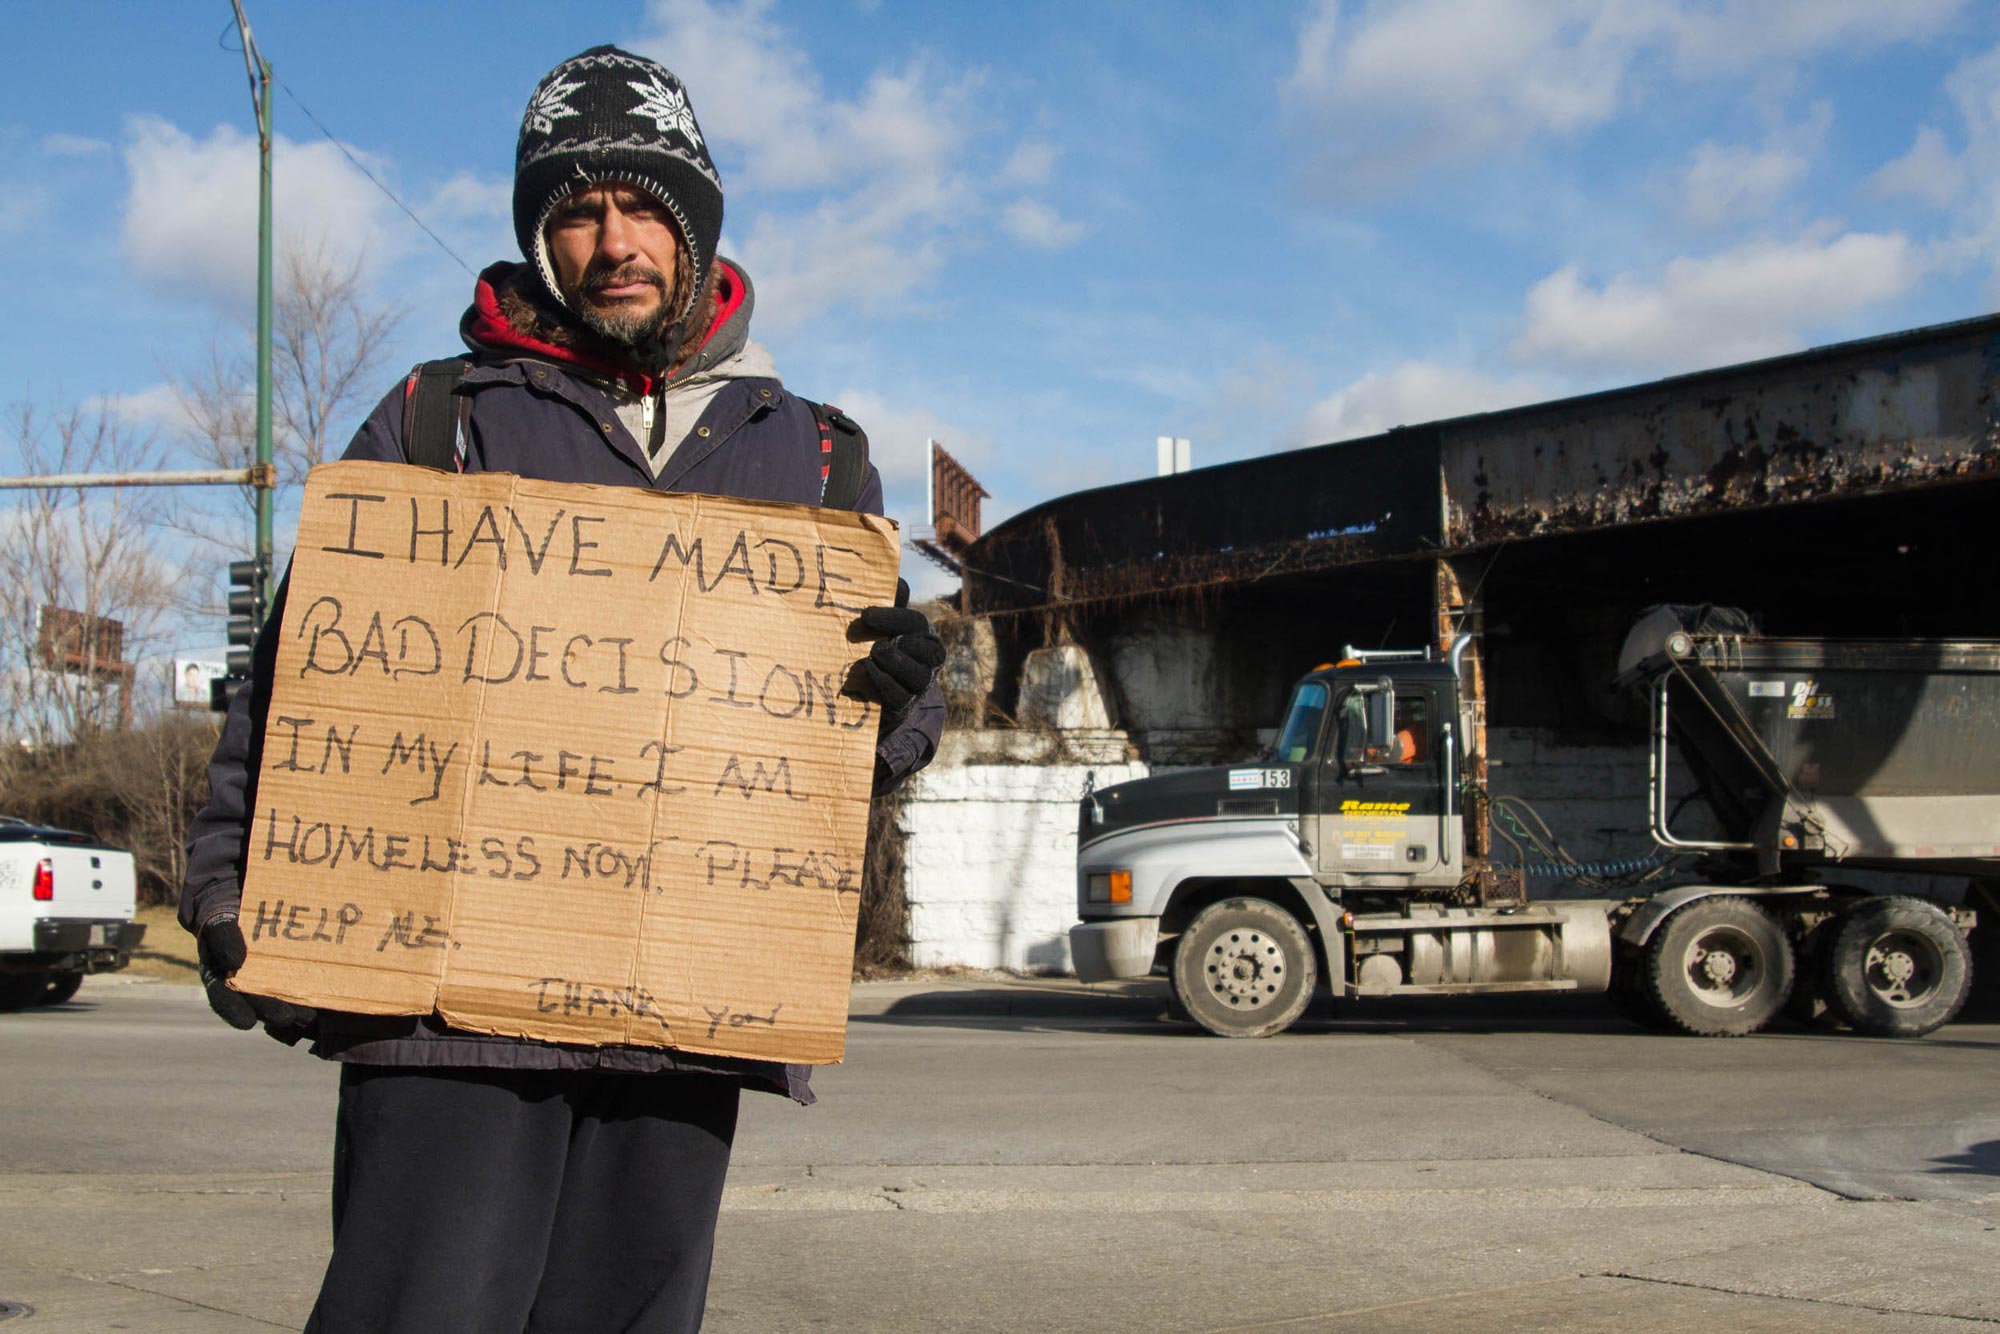 I HAVE MADE
BAD DECISIONS
IN MY LIFE. I AM
HOMELESS NOW. PLEASE
HELP ME.
THANK YOU
153
Rame
GENERAL
Dirt
Boss